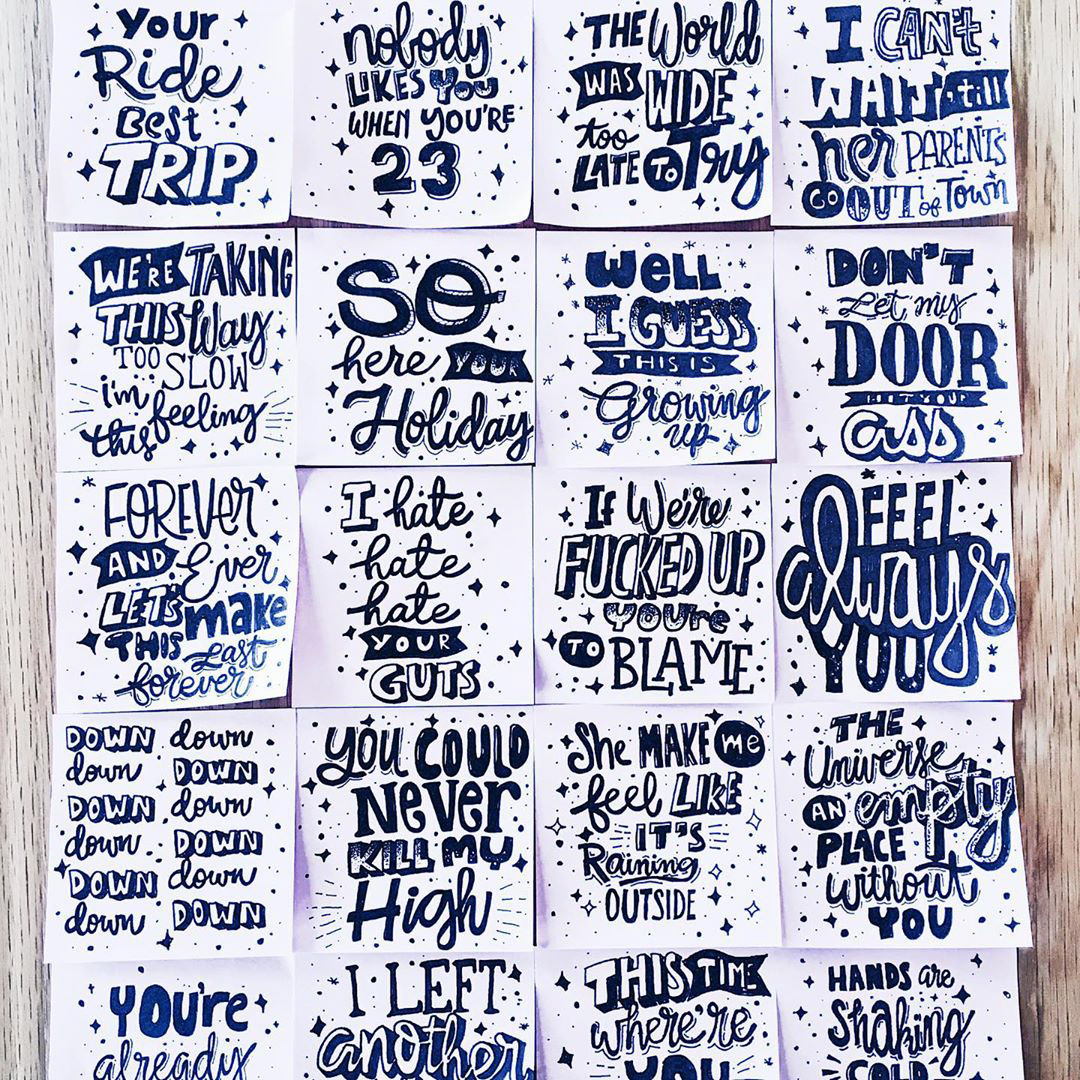 YOUR
Ride
BEST
TRIP
nobody
LIKES YOU
WHEN YOU'RE
23
THE World
WAS WIDE
too
LATE TO Try
I CAN't
WAIT till
her PARENTS
GO OUT of Town
WE'RE TAKING
THIS Way
TOO SLOW
i'm feeling
this
SO
here YOUR
Holiday
WELL
I GUESS
THIS IS
Growing
up
DON'T
Let my
DOOR
HIT YOUR
Ass
FOREVER
AND Ever
LET'S make
THIS Last
forever
I hate
hate
hate
YOUR
GUTS
If We're
FUCKED UP
YOU're
TO BLAME
I FEEL
always
YOU
DOWN down
down DOWN
DOWN down
down DOWN
DOWN down
down DOWN
YOU COULD
Never
KILL MY
High
She MAKE me
feel LIKE
IT'S
Raining
OUTSIDE
THE
Universe
AN empty
PLACE
without
YOU
YOU're
already
I LEFT
another
THIS TIME
where're
YOU
HANDS are
Shaking
COLD